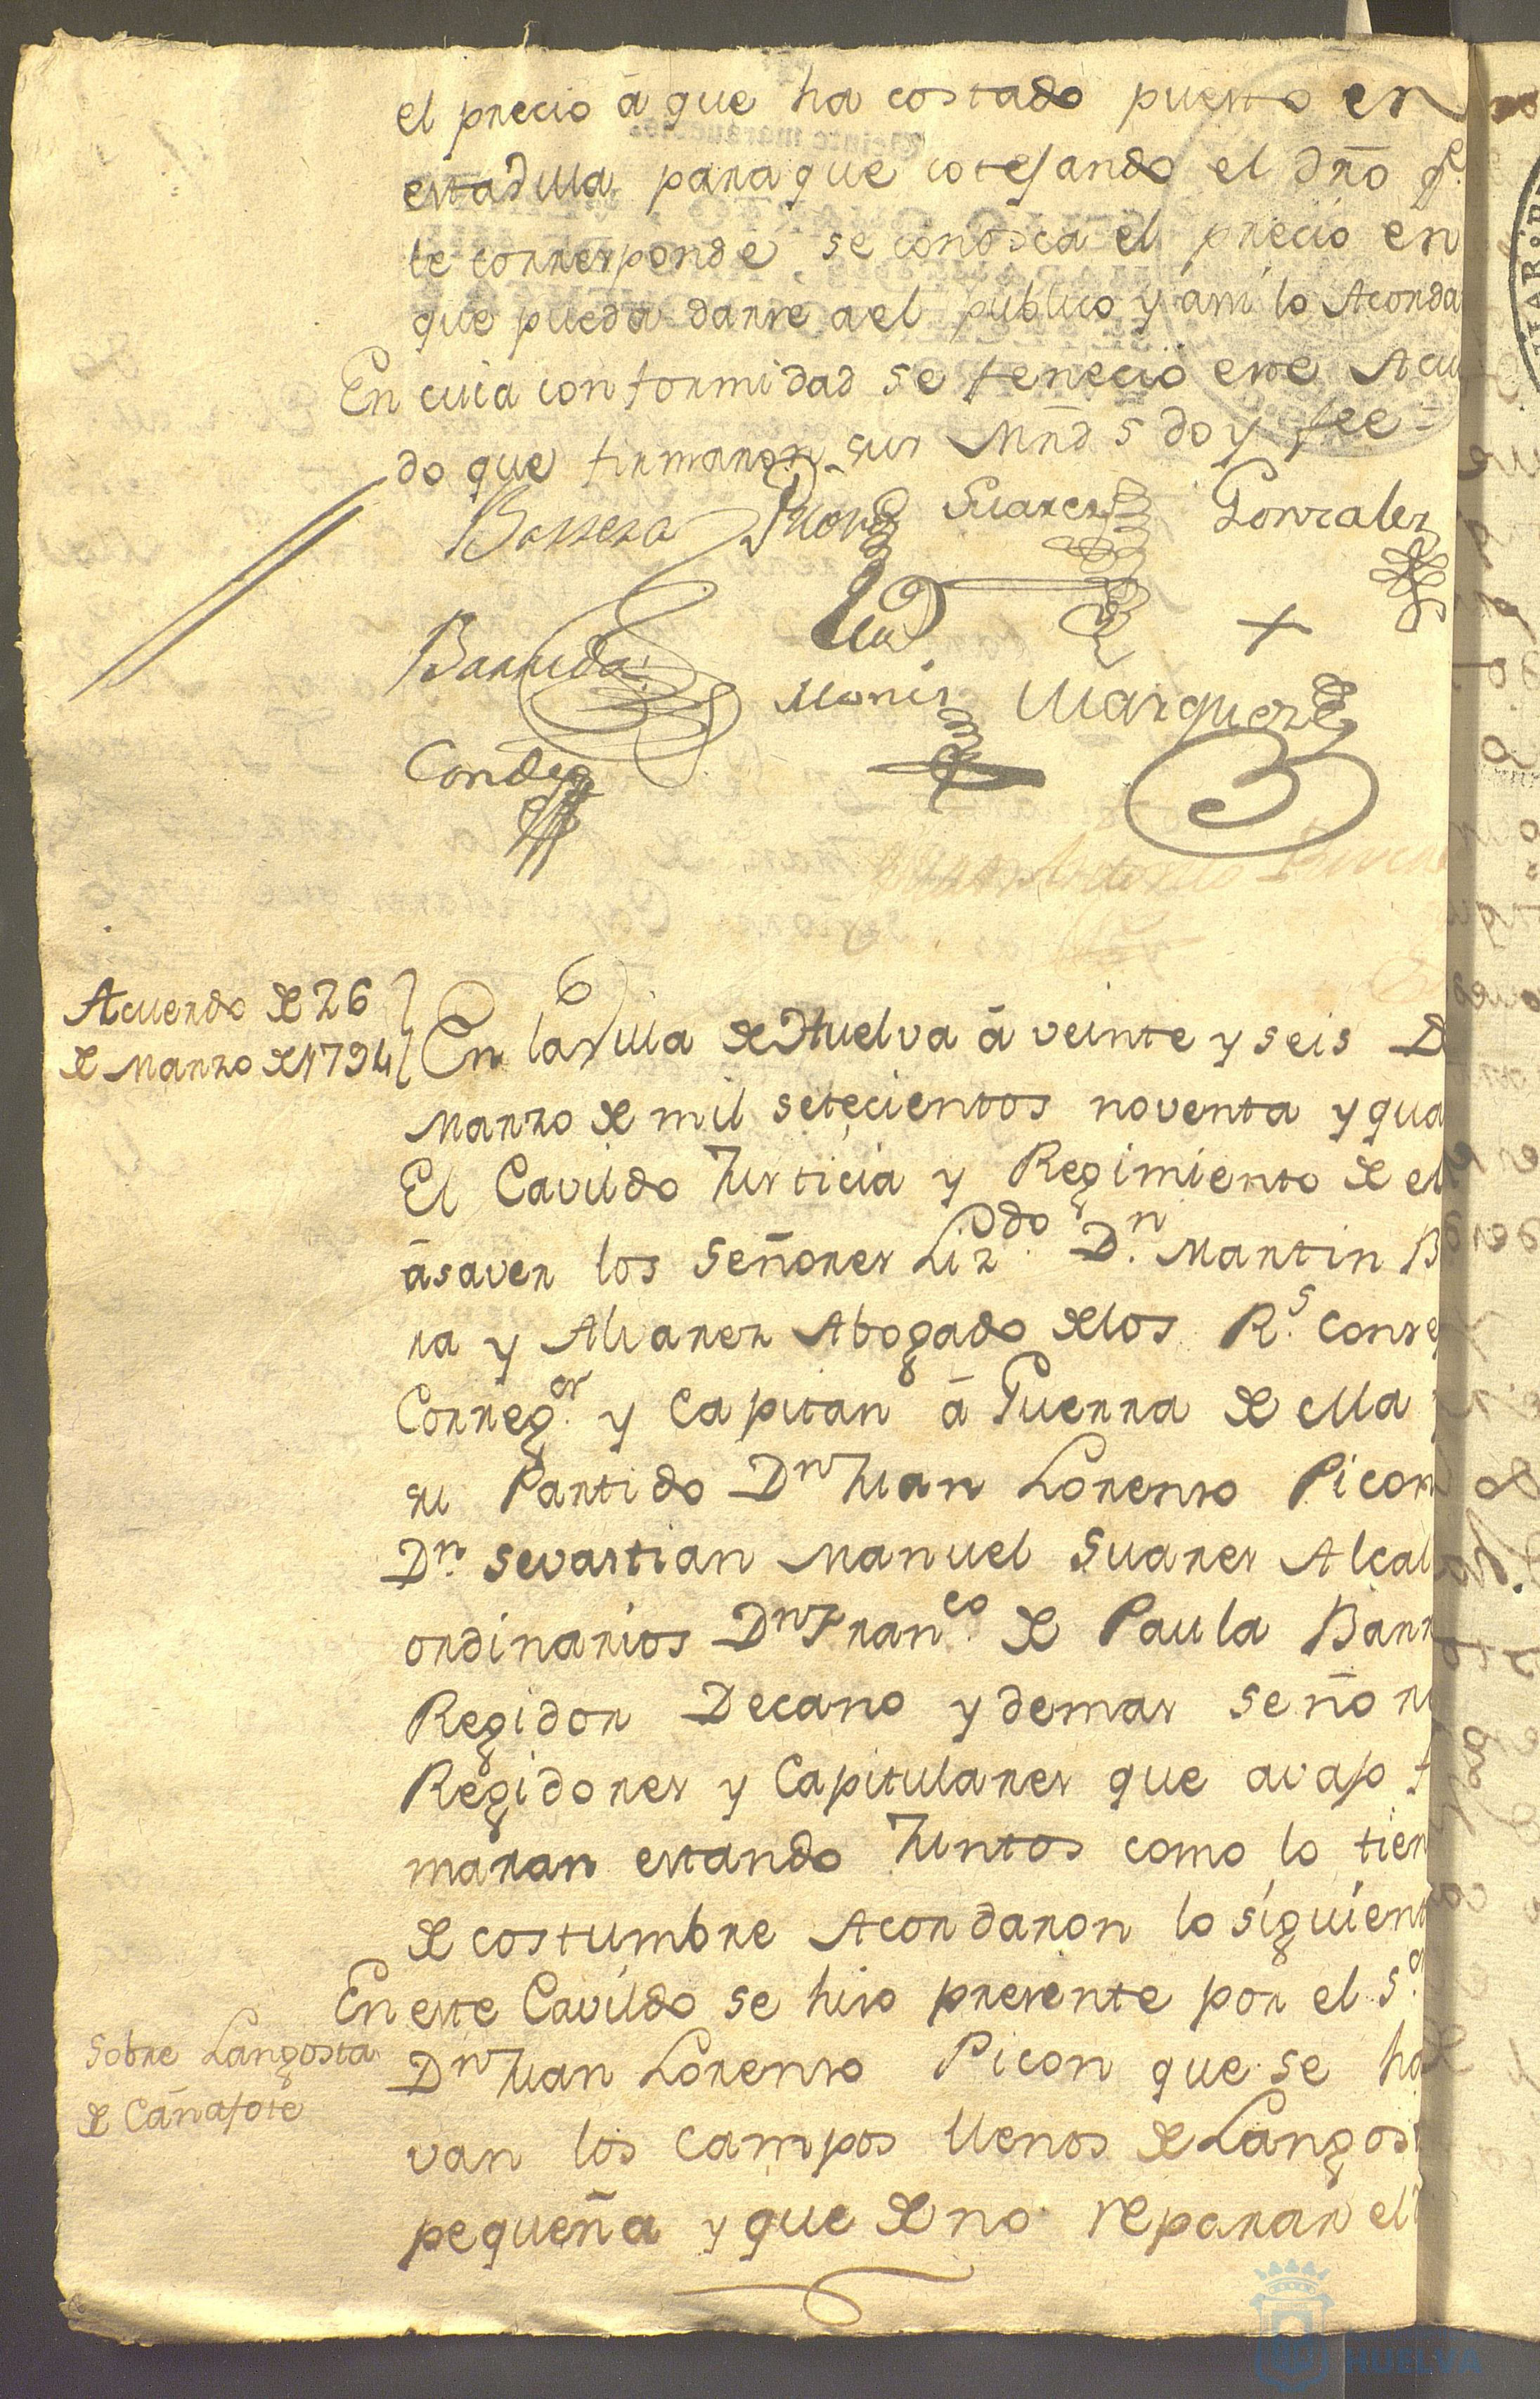 el precio â que ha costado puesto en
esta Villa para que cotejando el dr̃o q.e
le corresponde se conosca el precio en
que pueda darse a el publico y asi lo Acorda
En cuia conformidad se feneció este Acu
do que firmaron sus Mrd s doy fee =
Barrera Picon Suarez Gonzalez
Barreda Monis Marquez
Conde
Acuerdo de 26
de Marzo de 1794
En la Villa de Huelva â veinte y seis D
Marzo de mil setecientos noventa y qua
El Cavildo Justicia y Regimiento de el
âsaver los Señores Liz.do D.n Martin B
ra y Alvarez Abogado delos R.s Conse
Correg.or y Capitan â Guerra de ella
su Partido Dn Juan Lorenso Picon
D.n Sevastian Manuel Suares Alcal
ordinarios Dn Fran.co de Paula Barr
Regidor Decano y demas Señore
Regidores y Capitulares que avajo f
maran estando Juntos como lo tien
de costumbre Acordaron lo siguient
En este Cavildo se hiso presente por el S.r
Sobre Langosta
de Cañafote
Dn Juan Lorenso Picon que se ha
van los campos llenos de Langost
pequeña y que de no reparar el
HUELVA